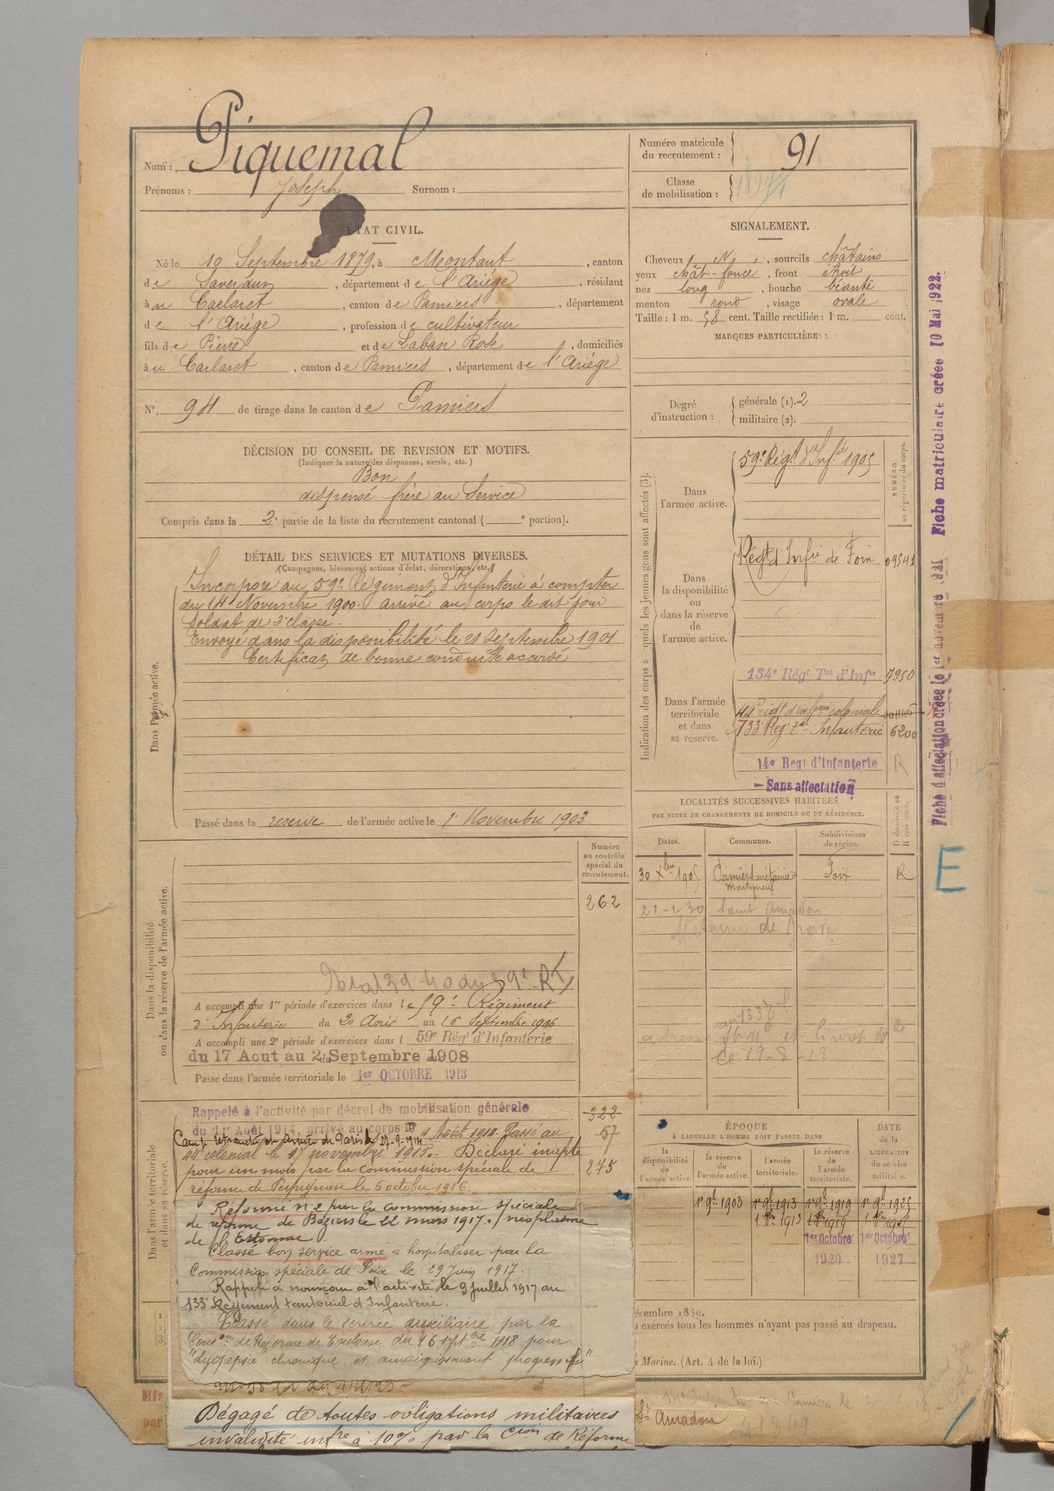 Nom : Piquemal
Prénoms : Joseph Surnom :
Numéro matricule
du recrutement : 91
Classe
de mobilisation :
ÉTAT CIVIL.
Né le 19 Septembre 1879, à Montaut, canton
de Saverdun, département de l'Ariège, résidant
à u Carlaret, canton de Pamiers, département
de l'Ariège, profession de cultivateur
fils de Pierre et de Laban Rose, domiciliés
à u Carlaret, canton de Pamiers, département de l'Ariège
N° 94 de tirage dans le canton de Pamiers
DÉCISION DU CONSEIL DE REVISION ET MOTIFS.
(Indiquer la nature des dispenses, sursis, etc.)
Bon
dispensé frère au Service
Compris dans la 2e partie de la liste du recrutement cantonal ( e portion).
DÉTAIL DES SERVICES ET MUTATIONS DIVERSES.
(Campagnes, blessures, actions d'éclat, décorations, etc.)
Dans l'armée active.
Incorporé au 59e Régiment d'Infanterie à compter
du 14 Novembre 1900. arrivé au corps le dit jour
Soldat de 2e classe.
Envoyé dans la disponibilité le 21 Septembre 1901
Certificat de bonne conduite accordé
Passé dans la reserve de l'armée active le 1er Novembre 1903
Numéro
au contrôle
spécial du
recrutement.
262
Dans la disponibilité
ou dans la réserve de l'armée active.
A accompli une 1re période d'exercices dans le 59e Régiment
d'Infanterie du 20 Août au 16 Septembre 1906
A accompli une 2e période d'exercices dans l 59e Régt d'Infanterie
du 17 Aout au 2 Septembre 1908
Passé dans l'armée territoriale le 1er OCTOBRE 1913
Dans l'armée territoriale
et dans sa réserve.
Rappelé à l'activité par décret de mobilisation générale
du 1er Août 1914, arrivé au corps le 4 Août 1914. Passé au
Camp retranché de Paris le 27-9-1914
44e colonial le 17 novembre 1915. Déclaré inapte
pour un mois par la commission spéciale de
réforme de Perpignan le 6 octobre 1916.
322
57
275
Réformé n° 2 par la commission spéciale
de réforme de Béziers le 22 mars 1917. / néoplasme
de l'Estomac
Classé bon service armé à hospitaliser par la
Commission spéciale de Foix le 29 juin 1917.
Rappelé à nouveau à l'activité le 9 juillet 1917 au
133e Régiment territorial d'Infanterie.
Classé dans le service auxiliaire par la
Comson de Réforme de Toulouse du 16 septbre 1918 pour
"dyspepsie chronique et amaigrissement progressif"
Dégagé de toutes obligations militaires
invalidité infre à 10% par la Cion de Réforme
SIGNALEMENT.
Cheveux N., sourcils châtains
yeux chât-foncé, front étroit
nez long, bouche béante
menton rond, visage ovale
Taille : 1 m. 58 cent. Taille rectifiée : 1 m. cent.
MARQUES PARTICULIÈRES :
Degré
d'instruction : générale (1). 2
militaire (2).
Indication des corps auxquels les jeunes gens sont affectés (3).
NUMÉRO
au répertoire du corps.
Dans
l'armée active.
59e Régt d'Infie 1905
Dans
la disponibilité
ou
dans la réserve
de
l'armée active.
Régt d'Infie de Foix 09541
Dans l'armée
territoriale
et dans
sa réserve.
134e Régt Tal d'Infie 7950
44e régt d'infrie coloniale
133e Reg t al Infanterie 6200
14e Regt d'Infanterie R
Sans affectation
LOCALITÉS SUCCESSIVES HABITÉES
PAR SUITE DE CHANGEMENTS DE DOMICILE OU DE RÉSIDENCE.
Dates. Communes. Subdivisions
de région.
30 Xbre 1905 Pamiers métairie Foix R
21-1-30 Saint Amadou
ÉPOQUE
À LAQUELLE L'HOMME DOIT PASSER DANS
DATE
de la
LIBÉRATION
du service
militaire.
la
disponibilité
de l'armée
active.
la réserve
de
l'armée active.
l'armée
territoriale.
la réserve
de
l'armée
territoriale.
1er 9bre 1903 1er 9bre 1913 1er 9bre 1919 1er 9bre 1925
1er 8bre 1913 1er 8bre 1919
1er Octobre 1er Octobre
1920 1927
décembre 1889.
à exercés tous les hommes n'ayant pas passé au drapeau.
Marine. (Art. 4 de la loi.)
St Amadou
Fiche d'affectation créée le 1er novembre 1921 Fiche matriculaire créée 10 Mai 1922.
E